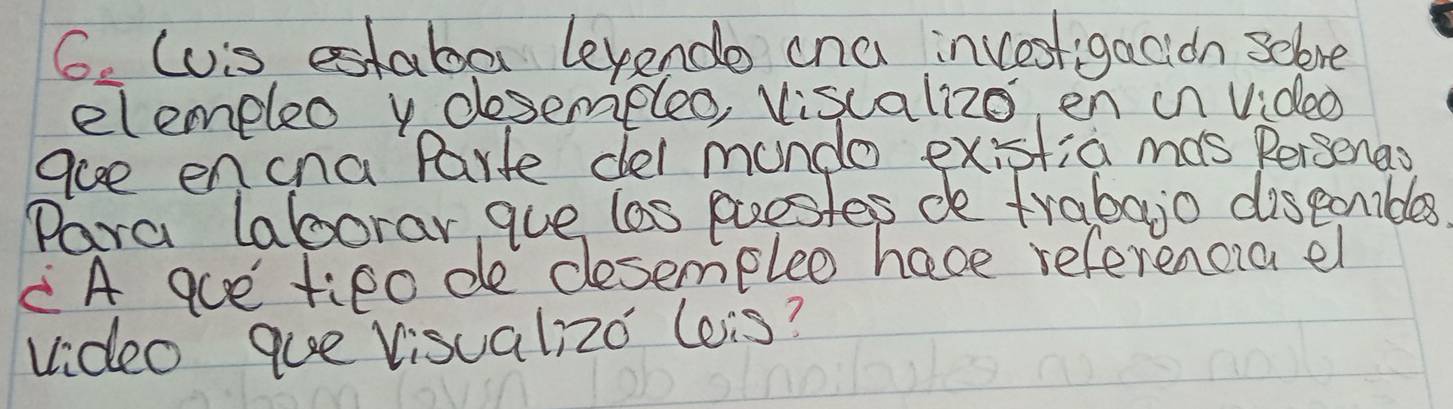 6. Luis estaba leyendo una investigación sobre
el empleo y desempleo, visualizó en un video
que en una parte del mundo existía mas Personas
Para laborar, que los puestos de trabajo disponibles.
¿A qué tipo de desempleo hace referencia el
video que visualizó Luis?